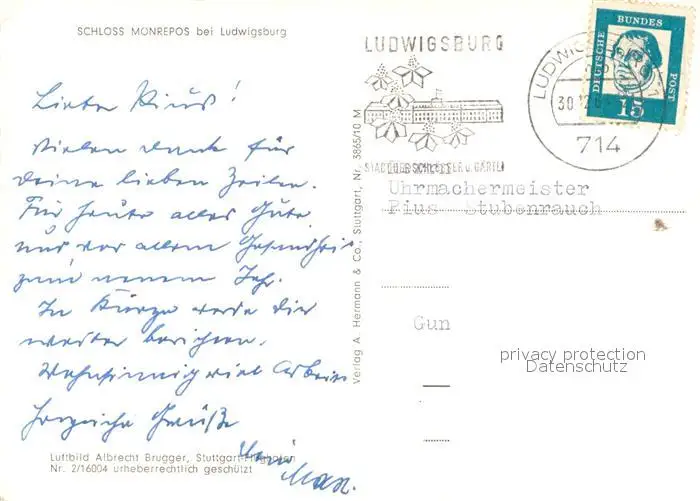 SCHLOSS MONREPOS bei Ludwigsburg
Lieber Pius!
Vielen Dank für
Deine lieben Zeilen.
Für heute alles Gute
und vor allem Gesundheit
zum neuen Jahr.
In Kürze werde Dir
weiter berichten.
Wahnsinnig viel Arbeit
Herzliche Grüße
Dein
Max.
Luftbild Albrecht Brugger, Stuttgart-Flughafen
Nr. 2/16004 urheberrechtlich geschützt
Verlag A. Hermann & Co., Stuttgart, Nr. 3865/10 M
LUDWIGSBURG
STADT DER SCHLÖSSER u. GÄRTEN
30.12.
714
DEUTSCHE
BUNDES
POST
15
Uhrmachermeister
Pius Stubenrauch
Gun
privacy protection
Datenschutz